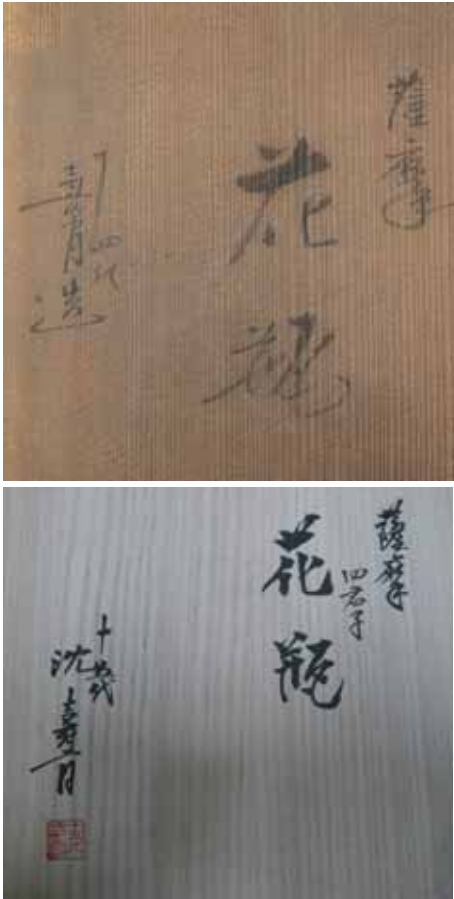 薩摩
花瓶
十四代
壽官造
薩摩
四君子
花瓶
沈壽官